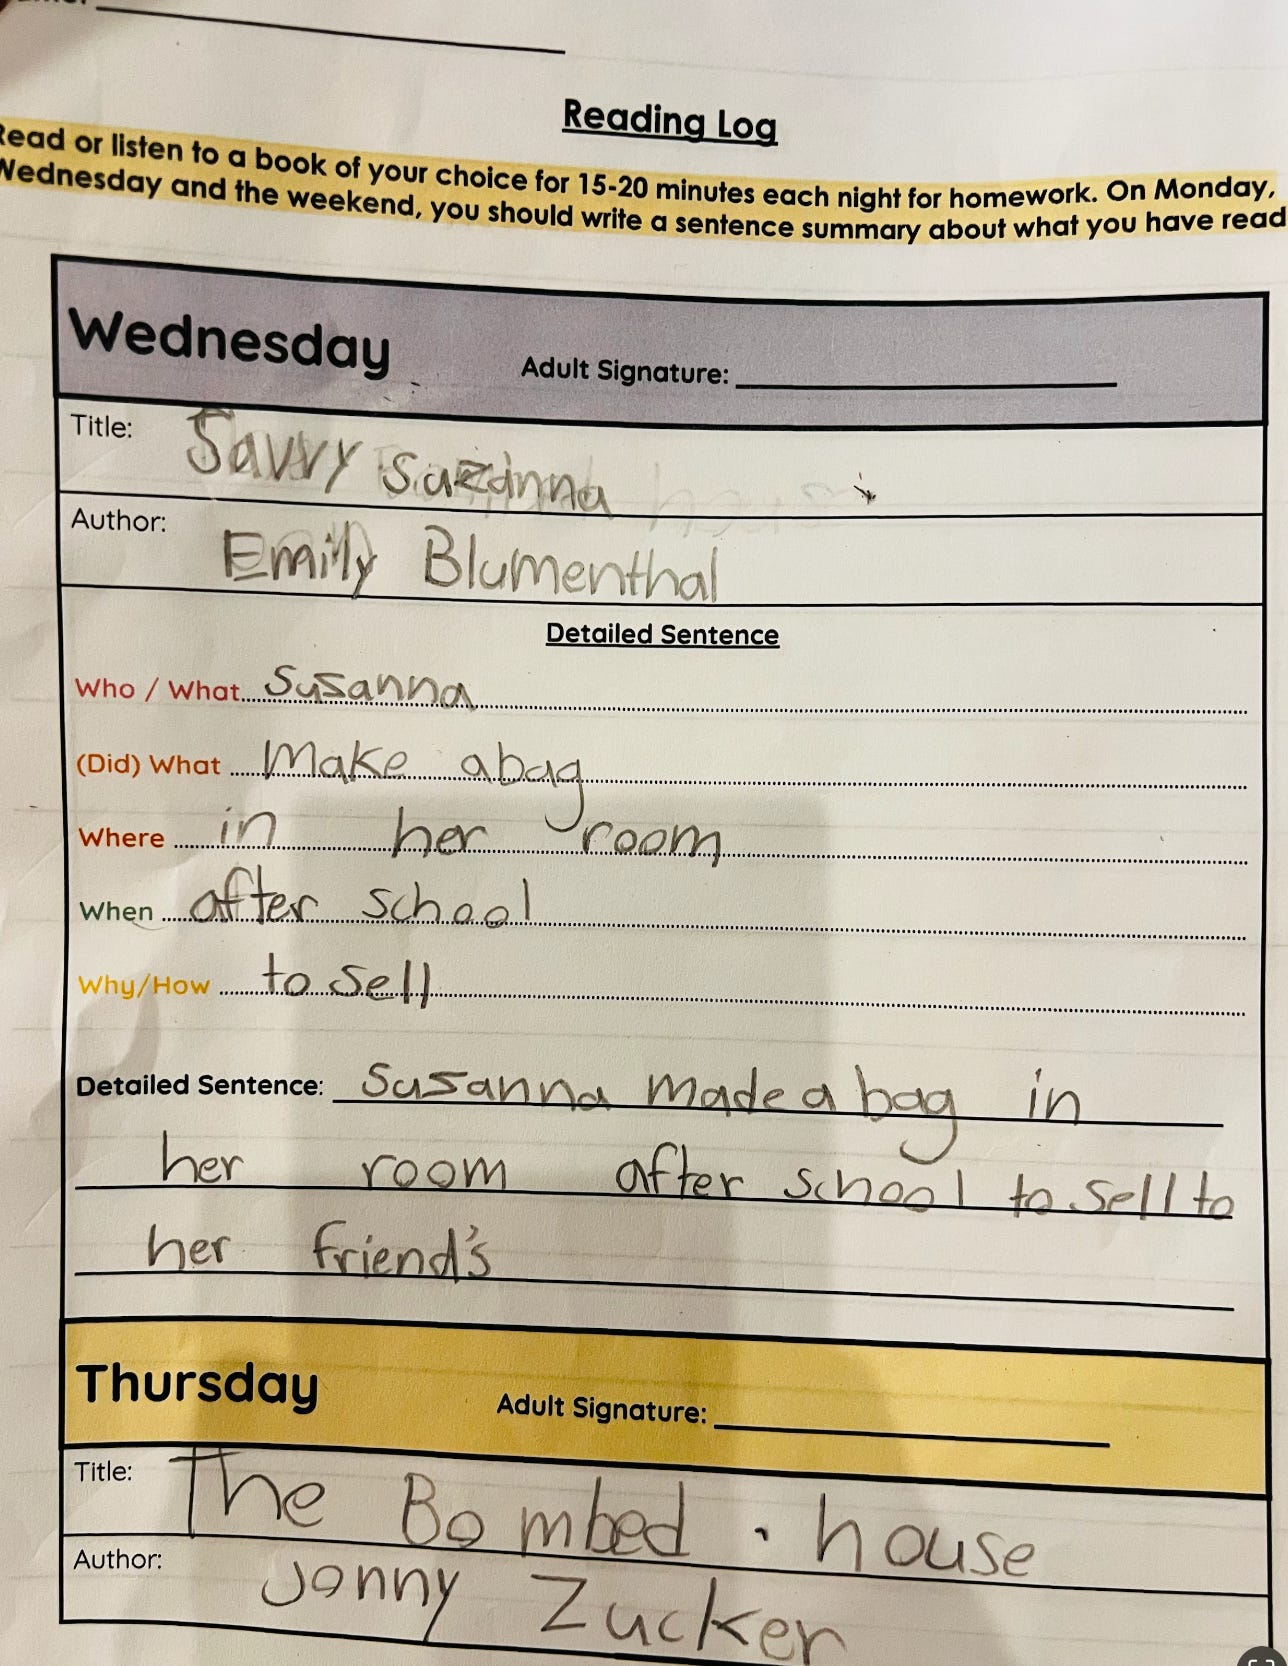 Reading Log
Read or listen to a book of your choice for 15-20 minutes each night for homework. On Monday,
Wednesday and the weekend, you should write a sentence summary about what you have read
Wednesday Adult Signature:
Title: Savvy Sazanna
Author: Emily Blumenthal
Detailed Sentence
Who / What Susanna
(Did) What Make a bag
Where in her room
When after school
Why/How to sell
Detailed Sentence: Susanna made a bag in
her room after school to sell to
her friend's
Thursday Adult Signature:
Title: The Bombed house
Author: Jonny Zucker